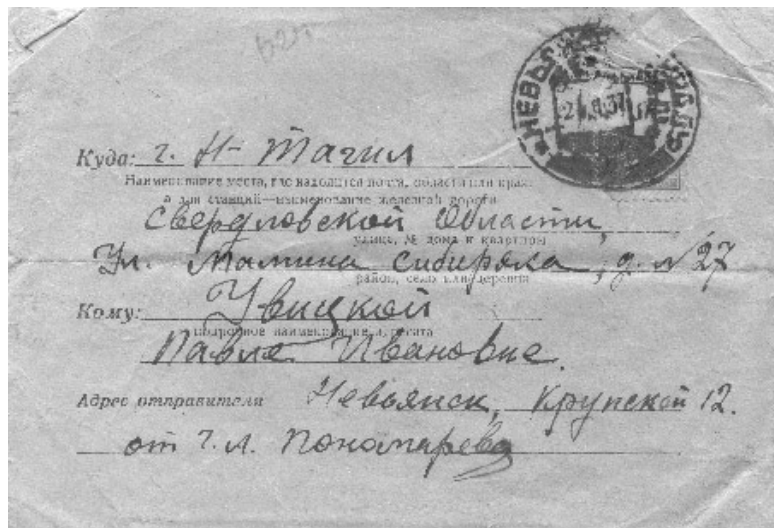 Куда: г. Н-Тагил
Наименование места, где находится почта, области или края
а для станций—наименование железной дороги
Свердловской области,
улица, № дома и квартиры
Ул. Мамина Сибиряка, д. №27
район, село или деревня
Кому: Увицкой
подробное наименование адресата
Павле Ивановне.
Адрес отправителя Невьянск, Крупской 12.
от Г. Л. Пономарева